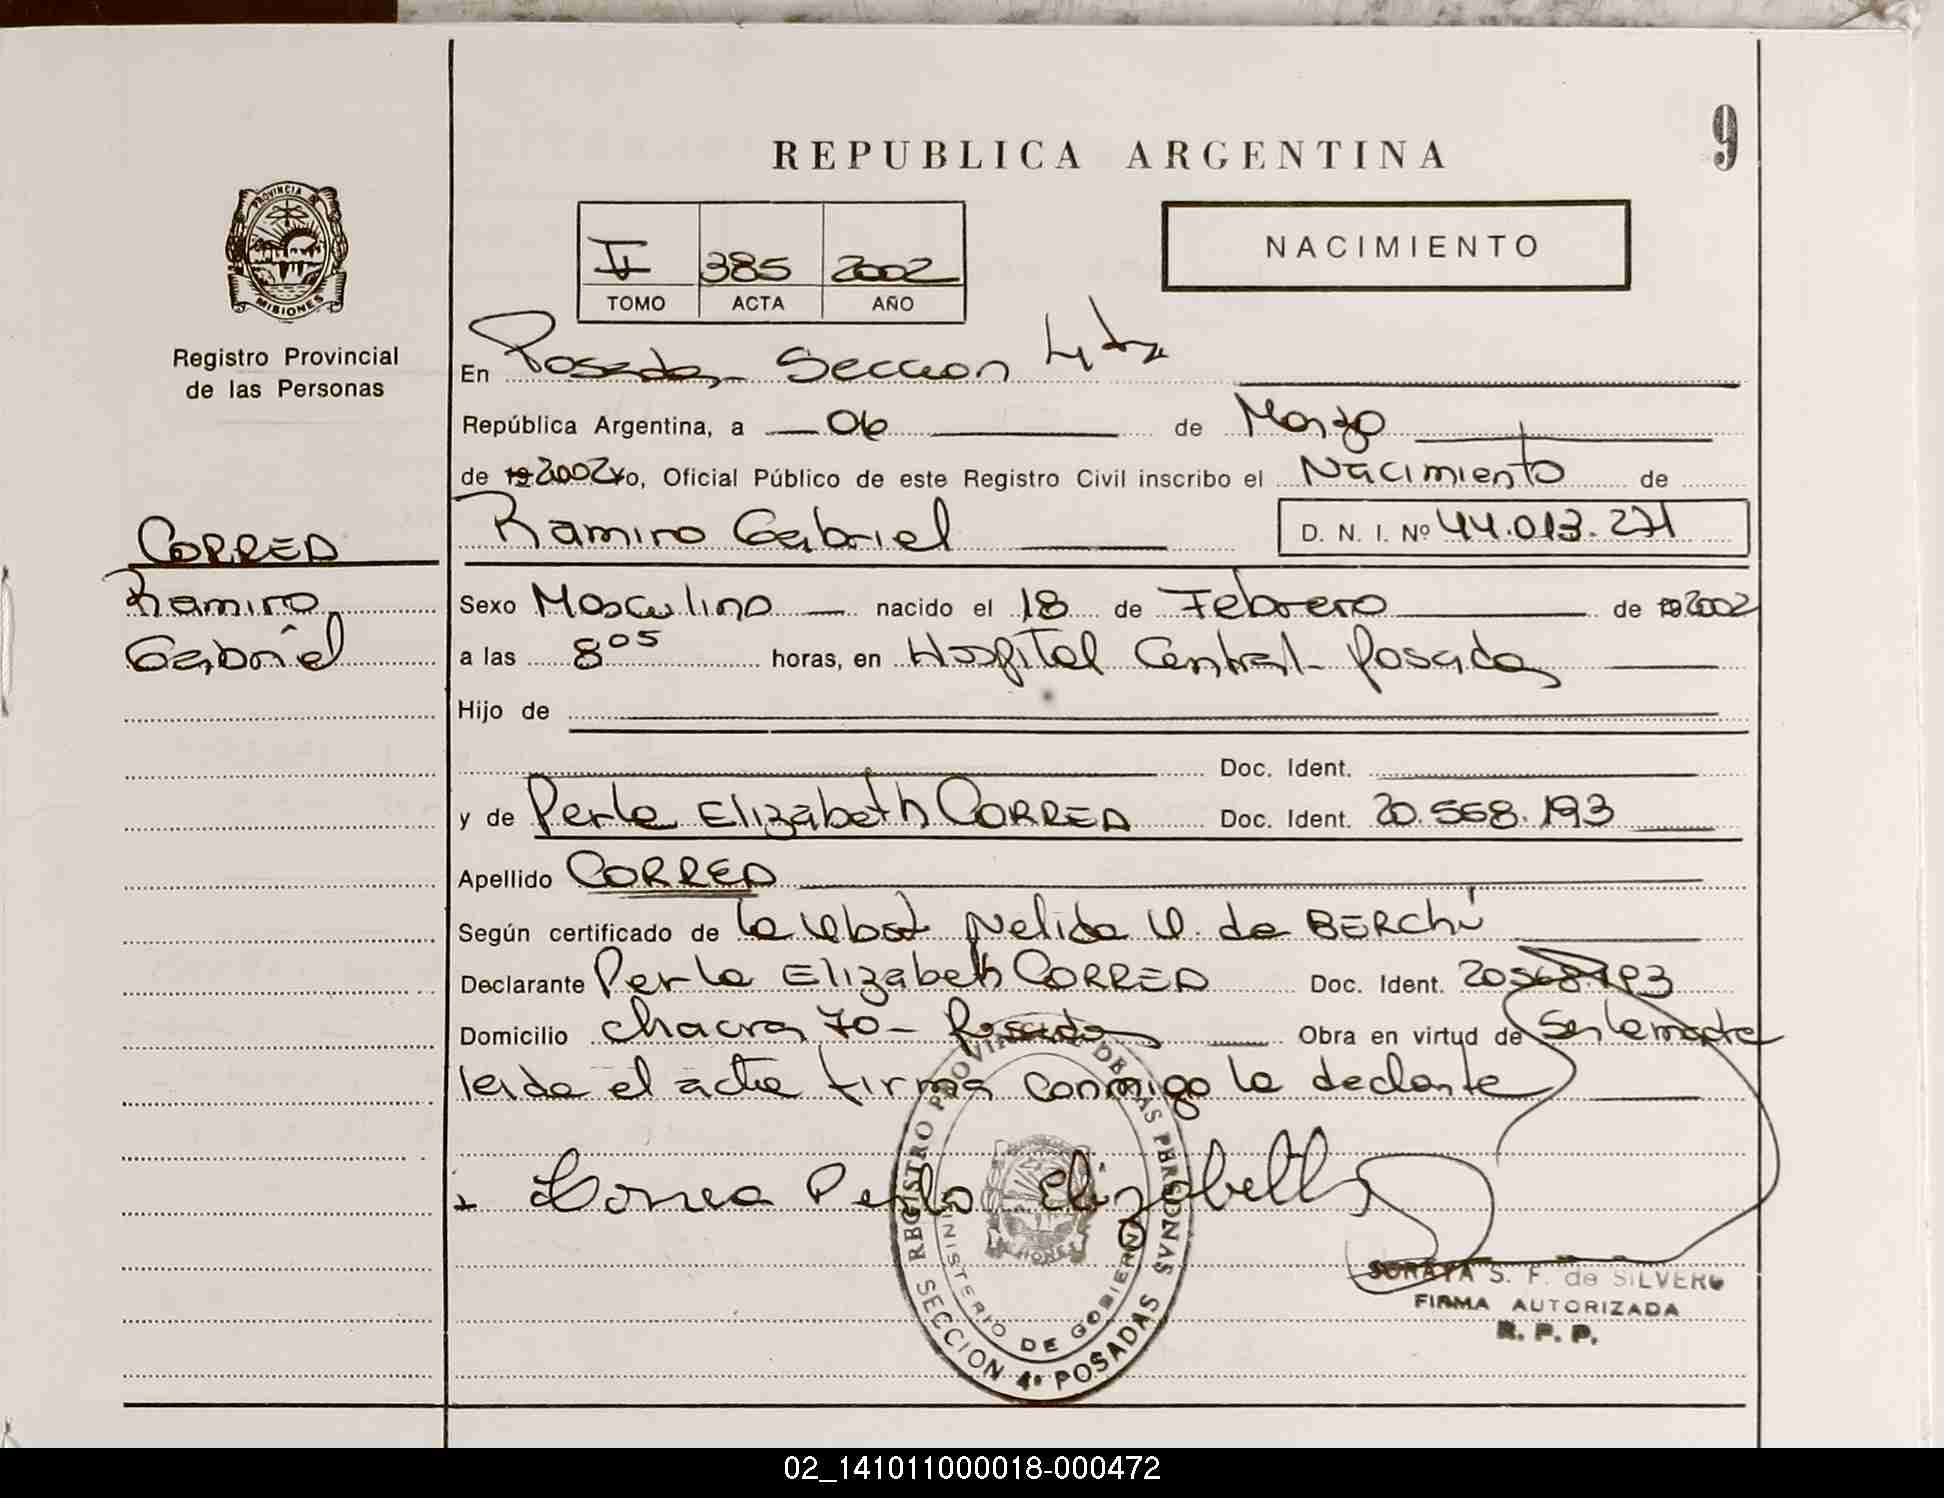 9
REPUBLICA ARGENTINA
NACIMIENTO
PROVINCIA
MISIONES
Registro Provincial
de las Personas
385 2002
TOMO ACTA AÑO
En Posadas Seccion 4ta
República Argentina, a 06 de Marzo
de 19 2002 Yo, Oficial Público de este Registro Civil inscribo el Nacimiento de
Ramiro Gabriel D. N. I. Nº 44.013.271
CORREA
Ramiro
Gabriel
Sexo Masculino nacido el 18 de Febrero de 19 2002
a las 8 05 horas, en Hospital Central Posadas
Hijo de
Doc. Ident.
y de Perla Elizabeth CORREA Doc. Ident. 20.568.193
Apellido CORREA
Según certificado de la Obst Nelida V. de BERCHI
Declarante Perla Elizabeth CORREA Doc. Ident. 20568193
Domicilio Chacra 70 - Posadas Obra en virtud de ser la madre
leida el acta firma conmigo la declante
Correa Perla Elizabeth
REGISTRO PROVINCIAL DE LAS PERSONAS
MINISTERIO DE GOBIERNO
SECCION 4ª POSADAS
SORAYA S. F. de SILVERO
FIRMA AUTORIZADA
R. P. P.
02_141011000018-000472